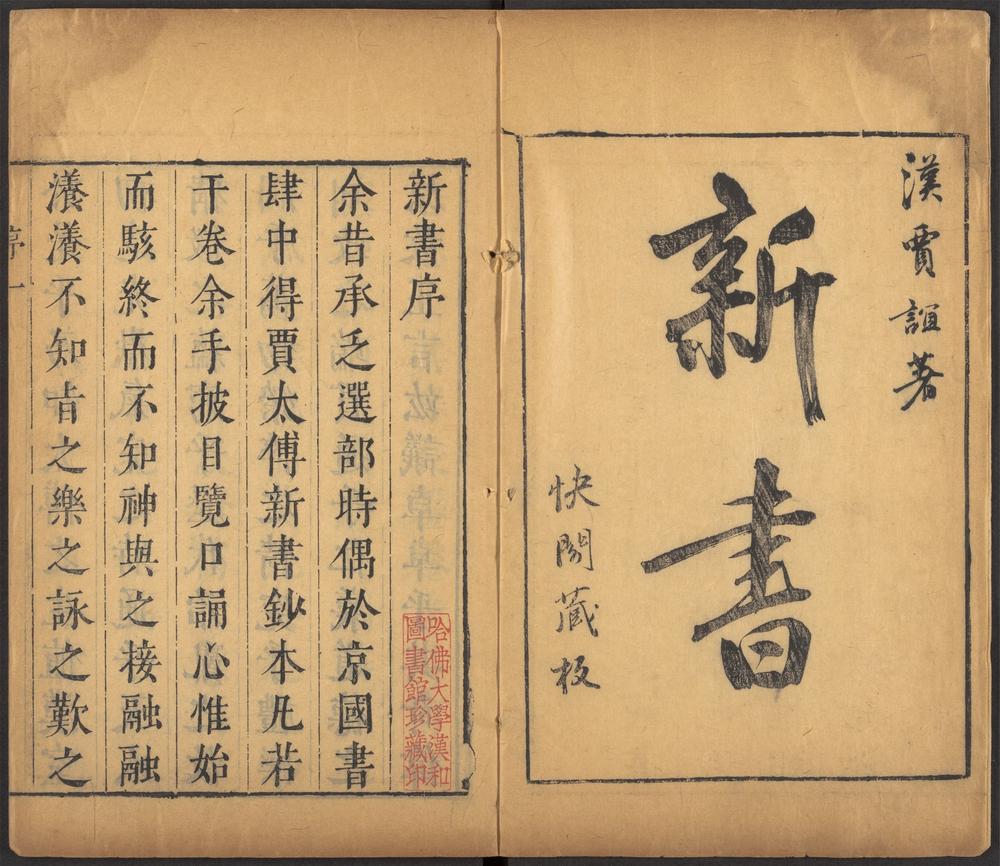 漢賈誼著
新書
快閣藏板
新書序
余昔承乏選部時偶於京國書
肆中得賈太傅新書鈔本凡若
干卷余手披目覽口誦心惟始
而駭終而不知神與之接融融
瀁瀁不知旹之樂之詠之歎之
序一
哈佛大學漢和
圖書館珍藏印